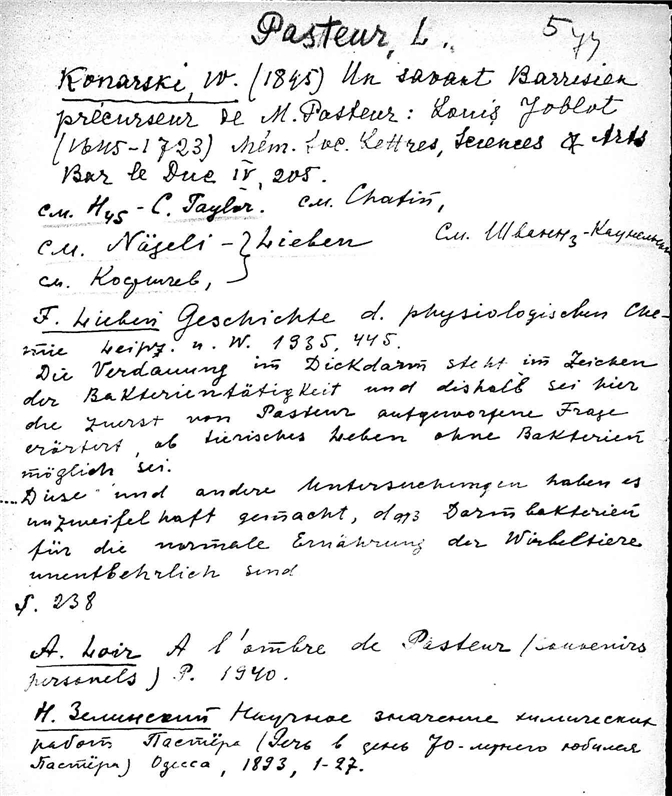 Pasteur, L.
Konarski, W. (1895) Un savant Barrisien
précurseur de M. Pasteur: Louis Joblot
(1645-1723) Mém. Soc. Lettres, Sciences & Arts
Bar le Duc IV, 205.
см. Нуs - C. Taylor. см. Chatin,
см. Nägeli - } Lieben см.
см.
F. Lieben Geschichte d. physiologischen Che-
mie Leipz. u. W. 1935, 445.
Die Verdauung im Dickdarm steht im Zeichen
der Bakterientätigkeit und deshalb sei hier
die zuerst von Pasteur aufgeworfene Frage
erörtert, ob tierisches Leben ohne Bakterien
möglich sei.
.... Diese und andere Untersuchungen haben es
unzweifelhaft gemacht, dass Darmbakterien
für die normale Ernährung der Wirbeltiere
unentbehrlich sind
S. 238
A. Loir A l'ombre de Pasteur (souvenirs
personels) P. 1940.
Н. Зелинский Научное значение химических
работ Пастёра (Речь в день 70-летнего юбилея
Пастёра) Одесса, 1893, 1-27.